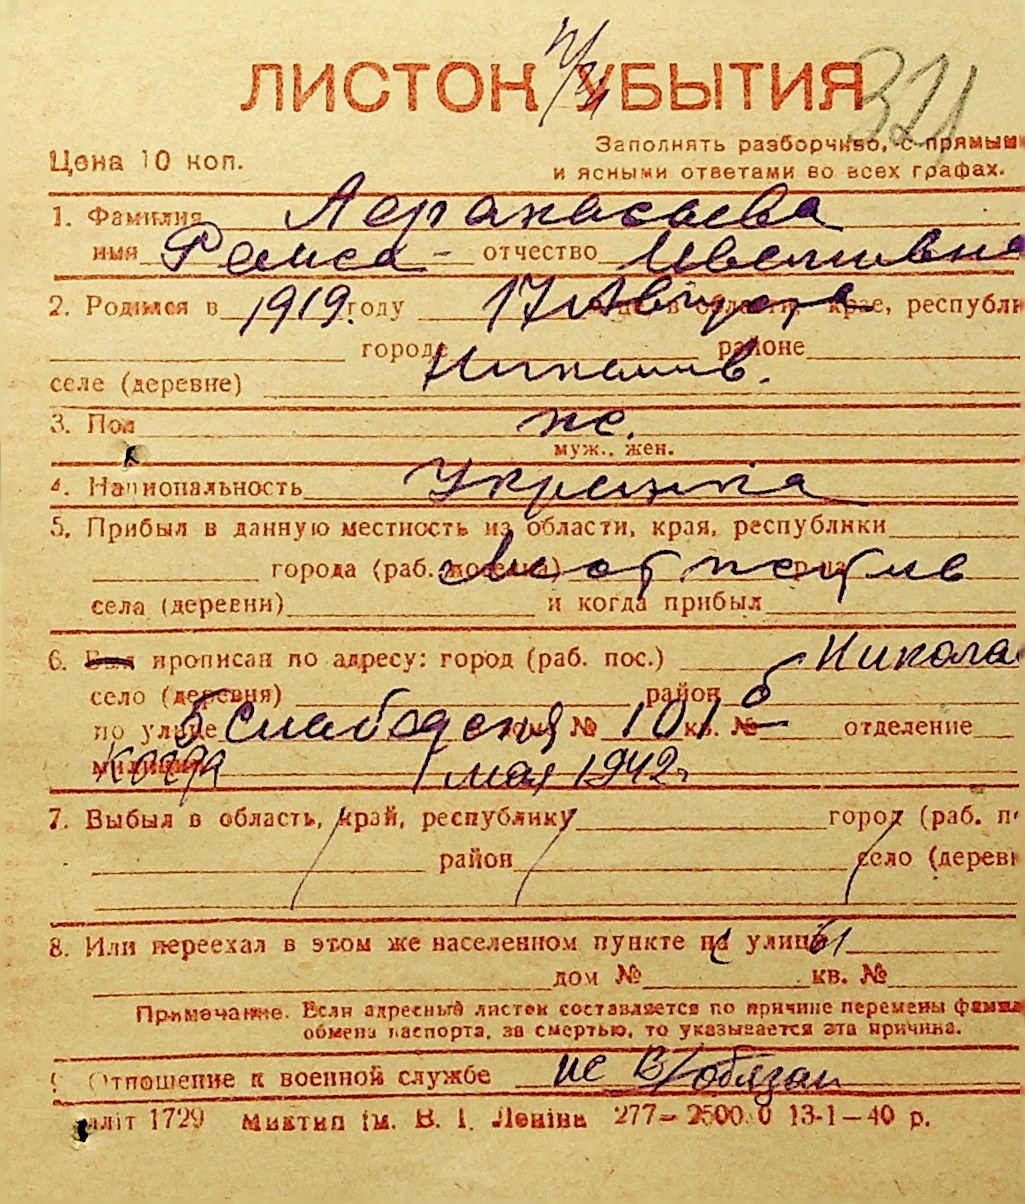 ЛИСТОК УБЫТИЯ
321
Цена 10 коп.
Заполнять разборчиво, с прямыми
и ясными ответами во всех графах.
1. Фамилия Афанасьева
имя Раиса - отчество Ивановна
2. Родился в 1919. году 17 Августа в области, крае, республи
городе районе
селе (деревне) Николаев.
3. Пол ж.
муж., жен.
4. Национальность Украинка
5. Прибыл в данную местность из области, края, республики
города (раб. поселка)
села (деревни) и когда прибыл
6. Был прописан по адресу: город (раб. пос.) Никола
село (деревня) район
по улице Слободская дом № 101 кв. № отделение
милиции Когда 1 мая 1942г
7. Выбыл в область, край, республику город (раб. п
район село (дерев
8. Или переехал в этом же населенном пункте на улицу
дом № кв. №
Примечание. Если адресный листок составляется по причине перемены фамил
обмена паспорта, за смертью, то указывается эта причина.
9 Отношение к военной службе не в/обязан
аліт 1729 Миктип ім. В. І. Леніна 277— 2500 0 13-1—40 р.